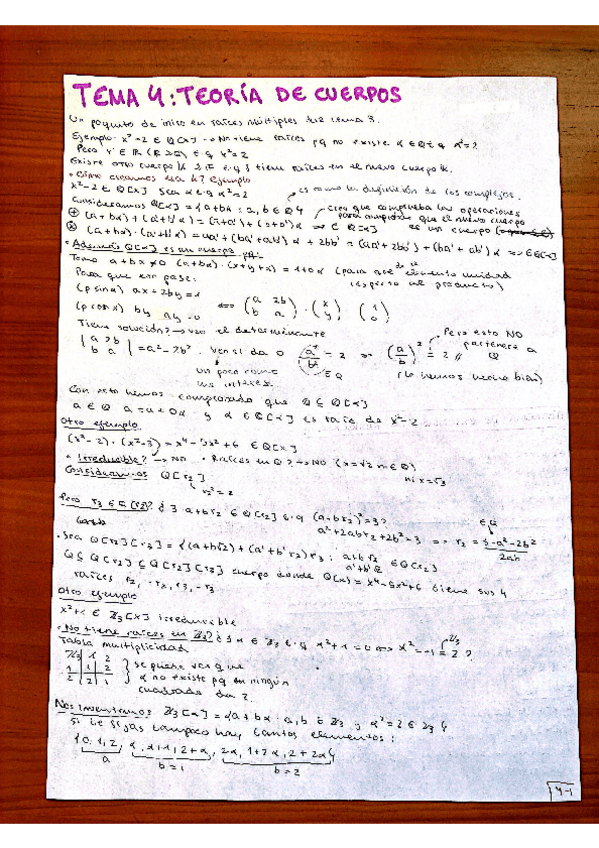 TEMA 4: TEORÍA DE CUERPOS
Un poquito de inciso en raíces múltiples del tema 3.
Ejemplo: x²-2 ∈ Q[x] → No tiene raíces pq no existe α ∈ Q t.q α²=2
Pero r ∈ R (R⊇Q) t.q r²=2
Existe otro cuerpo K t.q. tiene raíces en el nuevo cuerpo K.
• Cómo creamos sea K? Ejemplo
x²-2 ∈ Q[x] Sea α t.q α²=2 es como la definición de los complejos.
Consideramos Q[α] = {a+bα : a, b ∈ Q}
Creo que comprueba las operaciones
para comprobar que el nuevo cuerpo
es un cuerpo
⊕ (a+bα) + (a'+b'α) = (a+a') + (b+b')α ⇒ ∈ Q[α]
⊗ (a+bα)·(a'+b'α) = aa' + (ba'+ab')α + 2bb' = (aa'+2bb') + (ba'+ab')α ⇒ ∈ Q[α]
• Además Q[α] es un cuerpo pq:
Tomo a+bα ≠ 0 (a+bα)·(x+yα) = 1+0α (para que elemento unidad
respecto al producto)
Para que eso pase:
(p sin α) ax+2by=1
(p con α) bx ay=0 ⟺ (a 2b / b a)·(x / y) (1 / 0)
Tiene solución? → veo el determinante
|a 2b / b a| = a²-2b². Ven si da 0 a²/b² = 2 ⇒ (a/b)² = 2 //
∈ Q
Pero esto NO
pertenece a
Q
un poco como
(lo hemos hecho bien)
Con esto hemos comprobado que Q ⊆ Q[α]
a ∈ Q a = a+0α y α ∈ Q[α] es raíz de x²-2
Otro ejemplo
(x²-2)·(x²-3) = x⁴-5x²+6 ∈ Q[x]
• Irreducible? → No • Raíces en Q? → No (x=√2 no ∈ Q)
ni x=√3
Consideramos Q[r₂]
r₂²=2
Pero r₃ ∈ Q[r₂]? ¿∃ a+br₂ ∈ Q[r₂] t.q (a+br₂)²=3?
a²+2abr₂+2b²=3 ⇒ r₂ = 3-a²-2b² / 2ab
∈ Q
• Sea Q[r₂][r₃] = {(a+br₂) + (a'+b'r₂)r₃ : a+br₂ a'+b'r₂ ∈ Q[r₂]}
Q ⊆ Q[r₂] ⊆ Q[r₂][r₃] cuerpo donde Q(x) = x⁴-5x²+6 tiene sus 4
raíces r₂, -r₂, r₃, -r₃
Otro ejemplo
x²+1 ∈ Z₃[x] irreducible
• No tiene raíces en Z₃? ¿∃ α ∈ Z₃ t.q α²+1=0 ⟺ α²=-1=2?
Z₃
Tabla multiplicidad
Z₃ 1 2
1 1 2
2 2 1
se puede ver que
α no existe pq en ningún
cuadrado da 2.
Nos inventamos Z₃[α] = {a+bα : a, b ∈ Z₃ y α²=2 ∈ Z₃}
Si te fijas tampoco hay tantos elementos:
{0, 1, 2, α, α+1, 2+α, 2α, 1+2α, 2+2α}
a b=1 b=2
4-1